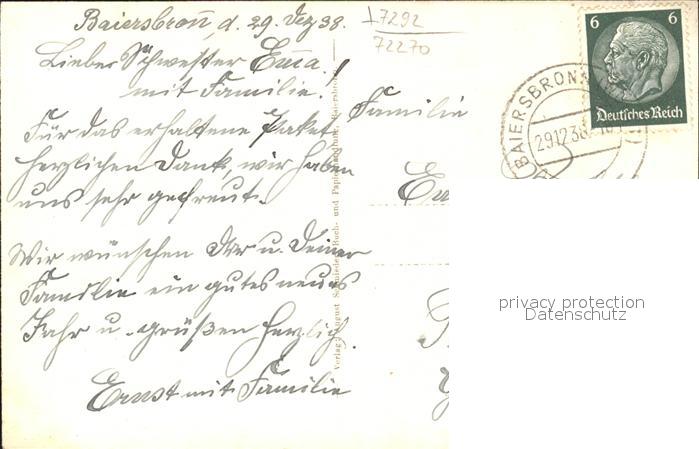 Baiersbronn, d. 29. Dez 38.
17292
72270
Liebe Schwester Emma
mit Familie!
Für das erhaltene Paket
herzlichen Dank, wir haben
uns sehr gefreut.
Wir wünschen Dir u. Deiner
Familie ein gutes neues
Jahr u. grüßen herzlich
Ernst mit Familie
Familie
6 6
Deutsches Reich
BAIERSBRONN
29.12.38
Verlag August Buch- und Papierhandlung, Baiersbronn
privacy protection
Datenschutz